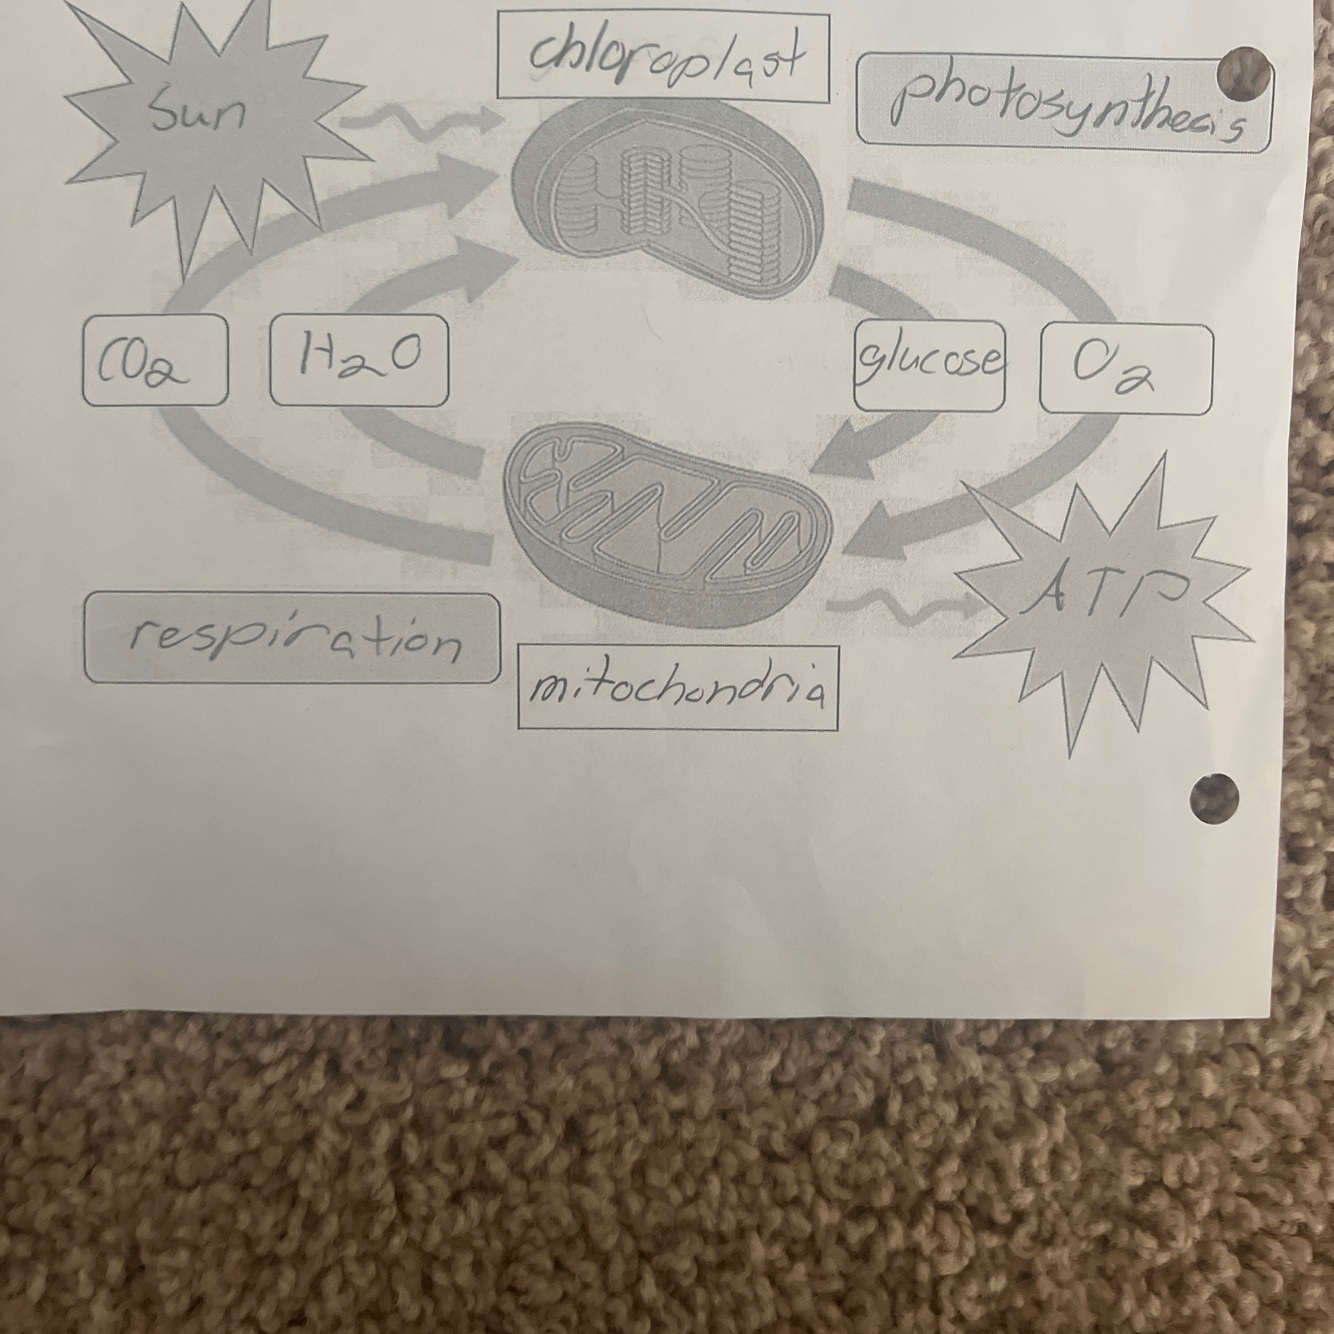 chloroplast
Sun
photosynthesis
CO2
H2O
glucose
O2
ATP
respiration
mitochondria